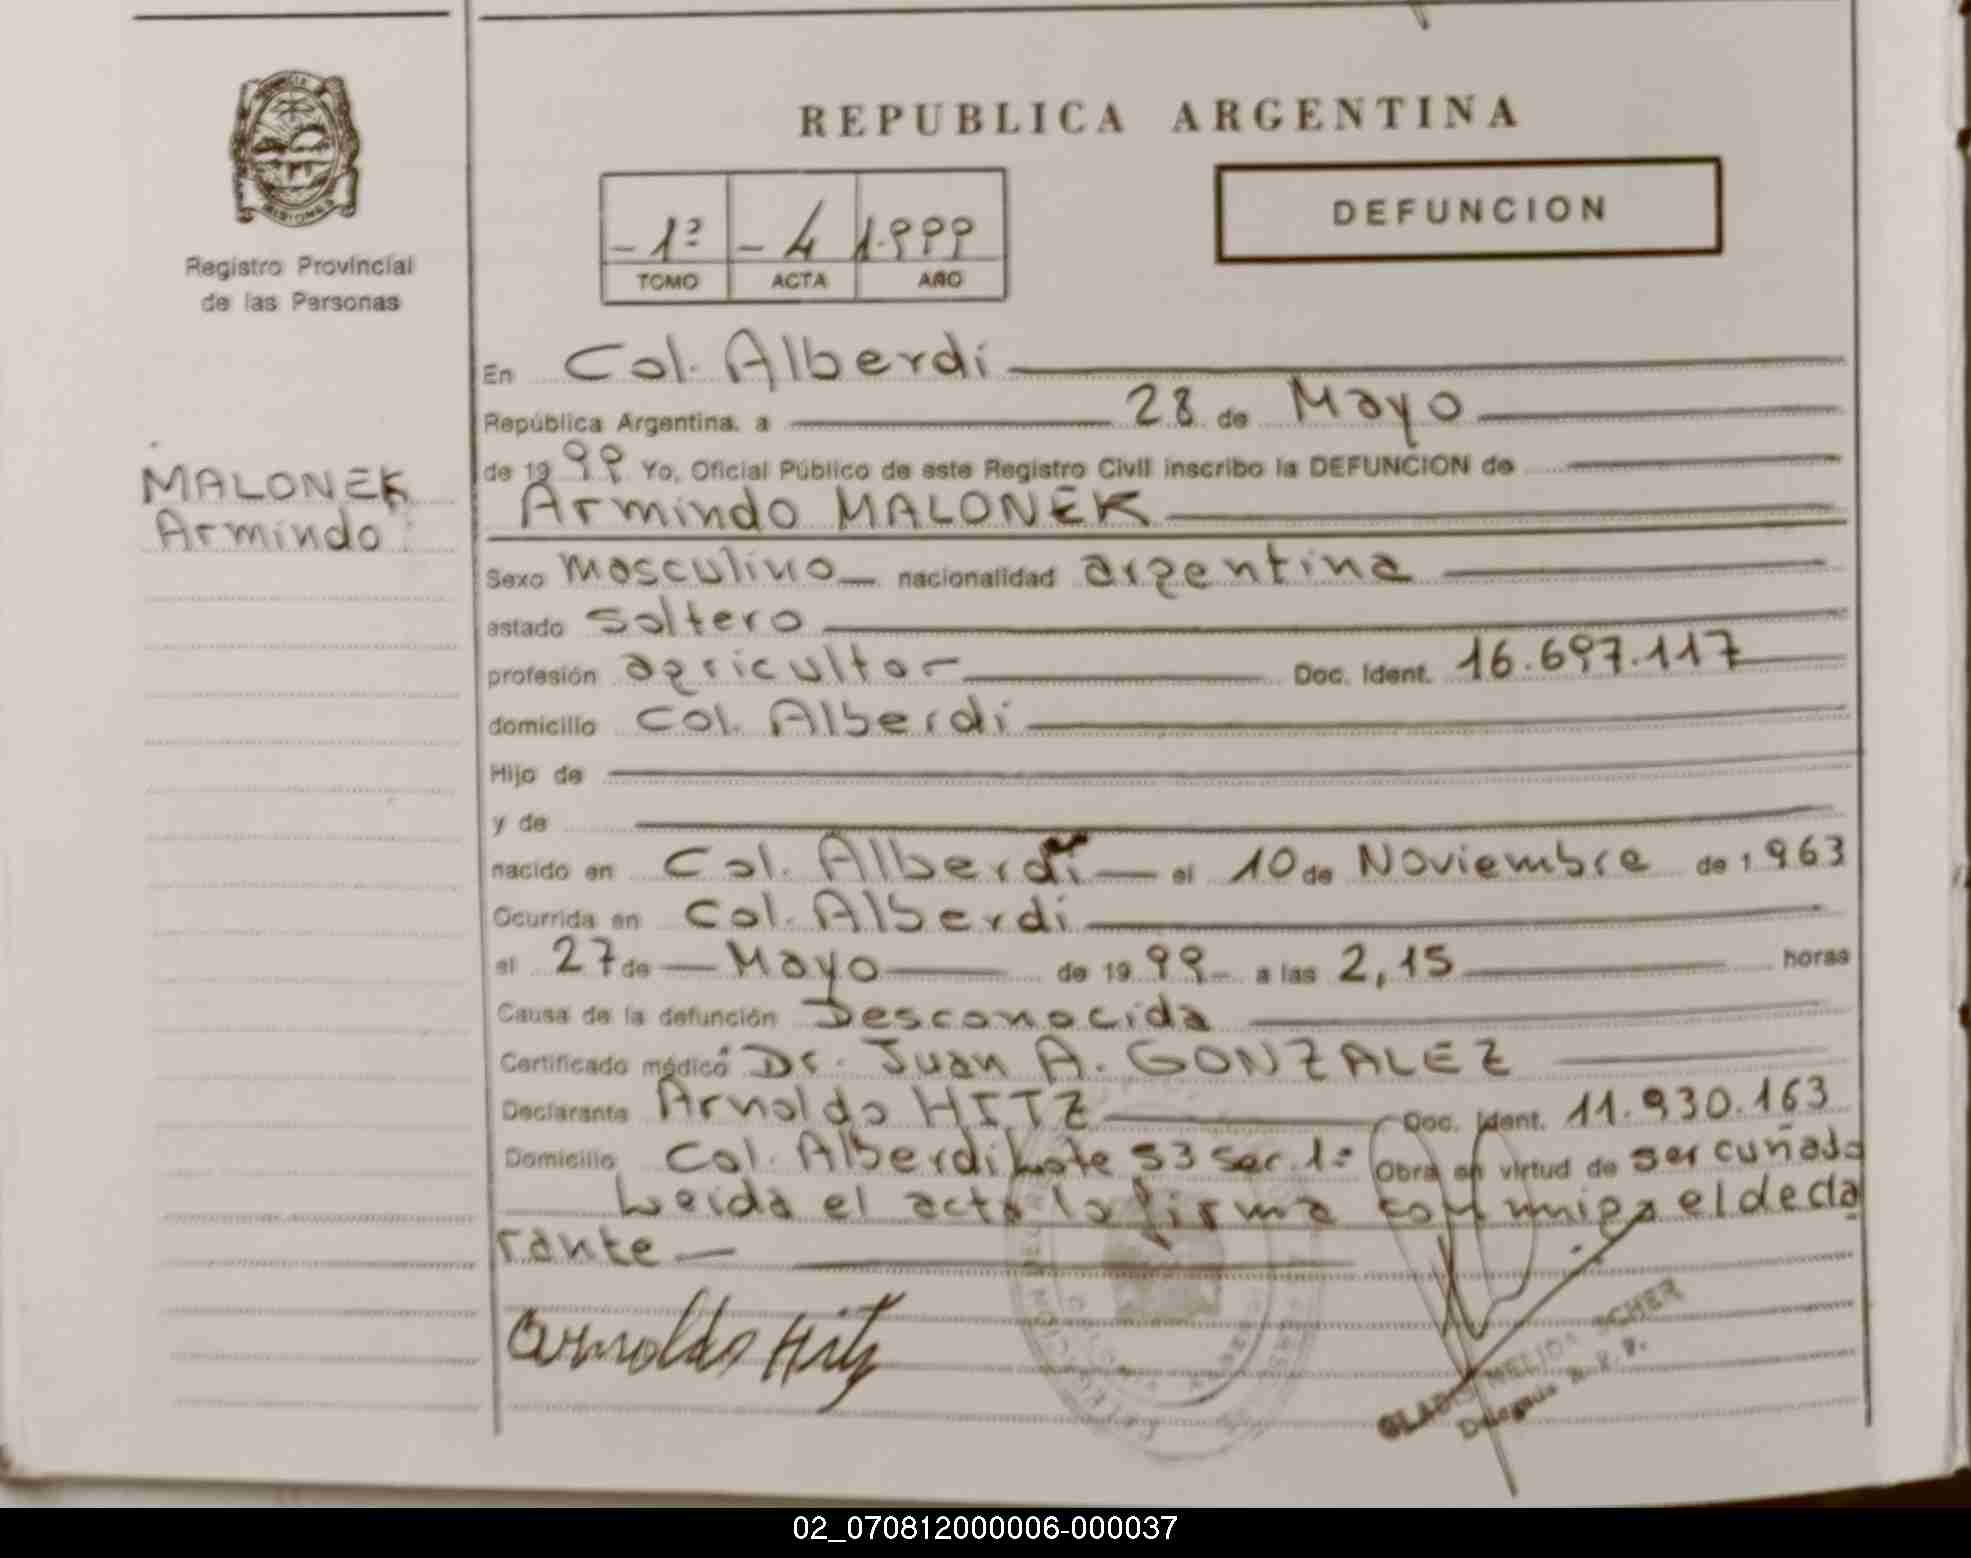 REPUBLICA ARGENTINA
MISIONES
Registro Provincial
de las Personas
- 1º - 4 1.999
TOMO ACTA AÑO
DEFUNCION
MALONEK
Armindo
En Col. Alberdi
República Argentina, a 28 de Mayo
de 1999 Yo, Oficial Público de este Registro Civil inscribo la DEFUNCION de
Armindo MALONEK
Sexo masculino nacionalidad argentina
estado Soltero
profesión agricultor Doc. Ident. 16.697.117
domicilio Col. Alberdi
Hijo de
y de
nacido en Col. Alberdi el 10 de Noviembre de 1963
Ocurrida en Col. Alberdi
el 27 de Mayo de 1999 a las 2,15 horas
Causa de la defunción Desconocida
Certificado médico Dr. Juan A. GONZALEZ
Declarante Arnoldo HITZ Doc. Ident. 11.930.163
Domicilio Col. Alberdi Lote 53 Sec. 1º Obra en virtud de ser cuñado
Leida el acta la firma conmigo el decla
rante
Arnoldo Hitz
SCHER
Delegada R. P. P.
02_070812000006-000037